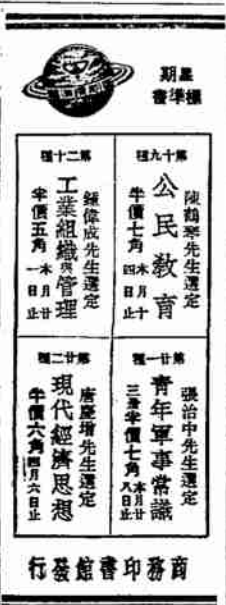 星期
標準書
第十九種
陳鶴琴先生選定
公民教育
半價七角 本月廿四日止
第二十種
鍾偉成先生選定
工業組織與管理
半價五角 本月廿一日止
第廿一種
張治中先生選定
青年軍事常識
三册半價七角 本月廿八日止
第廿二種
唐慶增先生選定
現代經濟思想
半價六角 四月六日止
商務印書館發行